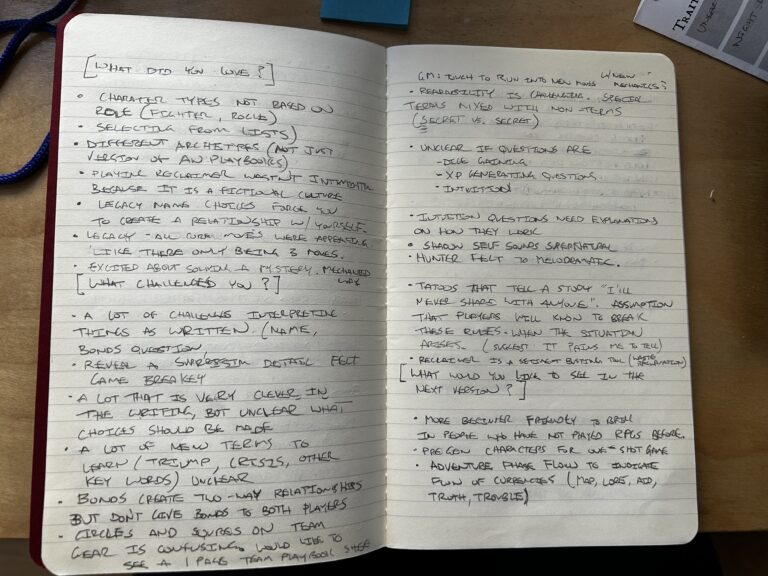 [WHAT DID YOU LOVE?]
• CHARATER TYPES NOT BASED ON
ROLE (FIGHTER, ROGUE)
• SELECTING FROM LISTS)
• DIFFERENT ARCHETYPES (NOT JUST
VERSION OF AN PLAYBOOKS)
• PLAYING RECLAIMER WASN'T
BECAUSE IT IS A FICTIONAL CULTURE
• LEGACY NAME CHOICES FORCE YOU
TO CREATE A RELATIONSHIP W/ YOURSELF.
• LEGACY - ALL CORE MOVES WERE APPEALING
LIKE THERE ONLY BEING 3 MOVES.
• EXCITED ABOUT SOLVING A MYSTERY.
[WHAT CHALLENGED YOU?]
• A LOT OF CHALLENGES INTERPRETING
THINGS AS WRITTEN. (NAME,
BONDS QUESTION
• REVEAL A DETAIL FELT
GAME BREAKEY
• A LOT THAT IS VERY CLEVER IN
THE WRITING, BUT UNCLEAR WHAT
CHOICES SHOULD BE MADE
• A LOT OF NEW TERMS TO
LEARN (TRIUMP, CRISIS, OTHER
KEY WORDS) UNCLEAR
• BONDS CREATE TWO-WAY RELATIONSHIPS
BUT DON'T GIVE BONDS TO BOTH PLAYERS
• CIRCLES AND SQURES ON TEAM
GEAR IS CONFUSING. WOULD LIKE TO
SEE A 1 PAGE TEAM PLAYBOOK
GM: TOUCH TO RUN INTO NEW MOVES W/ NEW MECHANICS
• READABILITY IS CHALLENGING. SPECIAL
TERMS MIXED WITH NON-TERMS
(SECRET VS. SECRET)
• UNCLEAR IF QUESTIONS ARE
- DICE GAINING
- XP GENERATING QUESTIONS.
- INTUITION
• INTUITION QUESTIONS NEED EXPLANATIONS
ON HOW THEY WORK
• SHADOW SELF SOUNDS SUPERNATURAL
• HUNTER FELT TO MELODRAMATIC.
• TATOOS THAT TELL A STORY "I'LL
NEVER SHARE WITH ANYONE". ASSUMPTION
THAT PLAYERS WILL KNOW TO BREAK
THESE RULES WHEN THE SITUATION
ARISES. (SUGGEST IT PAINS ME TO TELL)
• RECLAIMER IS A
[WHAT WOULD YOU LIKE TO SEE IN THE
NEXT VERSION?]
• MORE BEGINER FRIENDLY TO BRING
IN PEOPLE WHO HAVE NOT PLAYED RPGS BEFORE.
• PRE GEN CHARACTERS FOR ONE-SHOT GAME
• ADVENTURE PHASE FLOW TO INDICATE
FLOW OF CURRENCIES (MAP, LORE, AID,
TRUTH, TROUBLE)
TRAIT
NIGHT